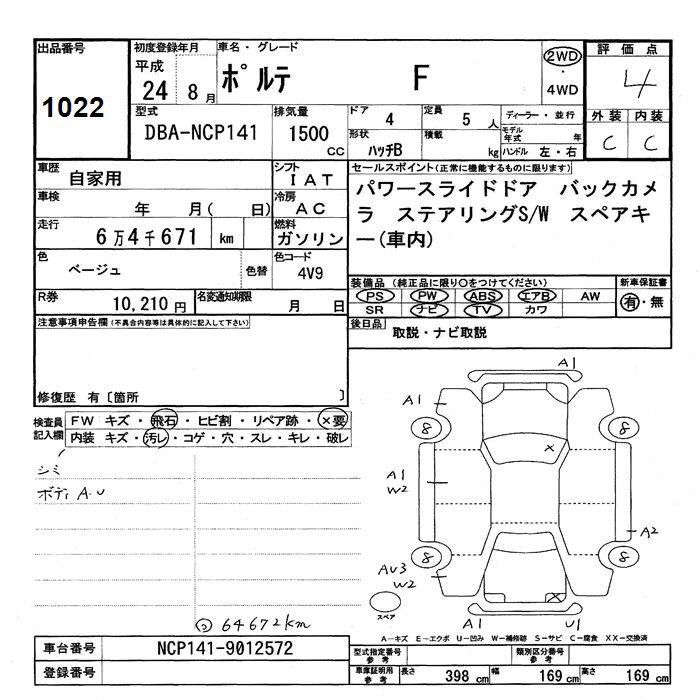 出品番号
1022
初度登録年月
平成
24 8 月
車名・グレード
ポルテ F
2WD
・
4WD
評価点
4
外装 内装
C C
型式
DBA-NCP141
排気量
1500 cc
ドア 4
定員 5 人
形状 ハッチB
積載 kg
ディーラー・並行
モデル年式 年
ハンドル 左・右
車歴
自家用
シフト
I A T
車検
年 月( 日)
冷房
A C
走行
6 万 4 千 671 km
燃料
ガソリン
色
ベージュ
色替
色コード
4V9
R券
10,210 円
名変通知期限
月 日
セールスポイント(正常に機能するものに限ります)
パワースライドドア バックカメ
ラ ステアリングS/W スペアキ
ー(車内)
装備品 (純正品に限り○をつけてください)
PS PW ABS エアB AW
SR ナビ TV カワ
新車保証書
有・無
後日品
取説・ナビ取説
注意事項申告欄(不具合内容等は具体的に記入して下さい)
修復歴 有〔箇所 〕
検査員
記入欄
FW キズ・飛石・ヒビ割・リペア跡・×要
内装 キズ・汚レ・コゲ・穴・スレ・キレ・破レ
シミ
ボディ A.U
64672km
A1
A1
8
8
x
A1
W2
A2
AU3
W2
8
8
x
スペア
A1
U1
A-キズ E-エクボ U-凹み W-補修跡 S-サビ C-腐食 XX-交換済
車台番号
NCP141-9012572
登録番号
型式指定番号
参考
類別区分番号
参考
車庫証明用
参考
長さ 398 cm 幅 169 cm 高さ 169 cm